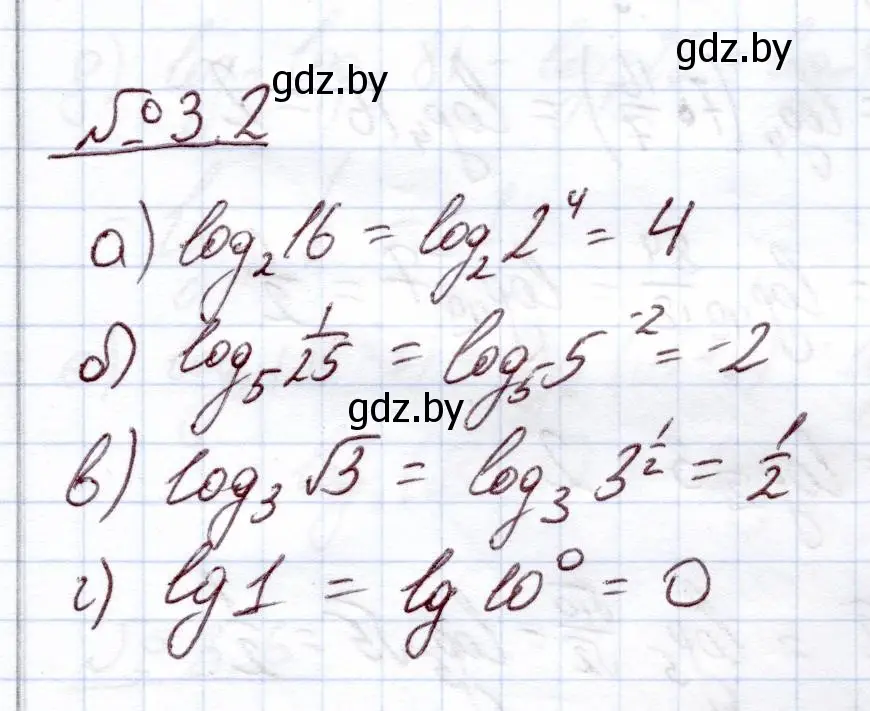 gdz.by
gdz.by
№ 3.2
а) log₂16 = log₂2⁴ = 4
б) log₅ 1/25 = log₅5⁻² = -2
gdz.by
в) log₃√3 = log₃3^(1/2) = 1/2
г) lg1 = lg10⁰ = 0